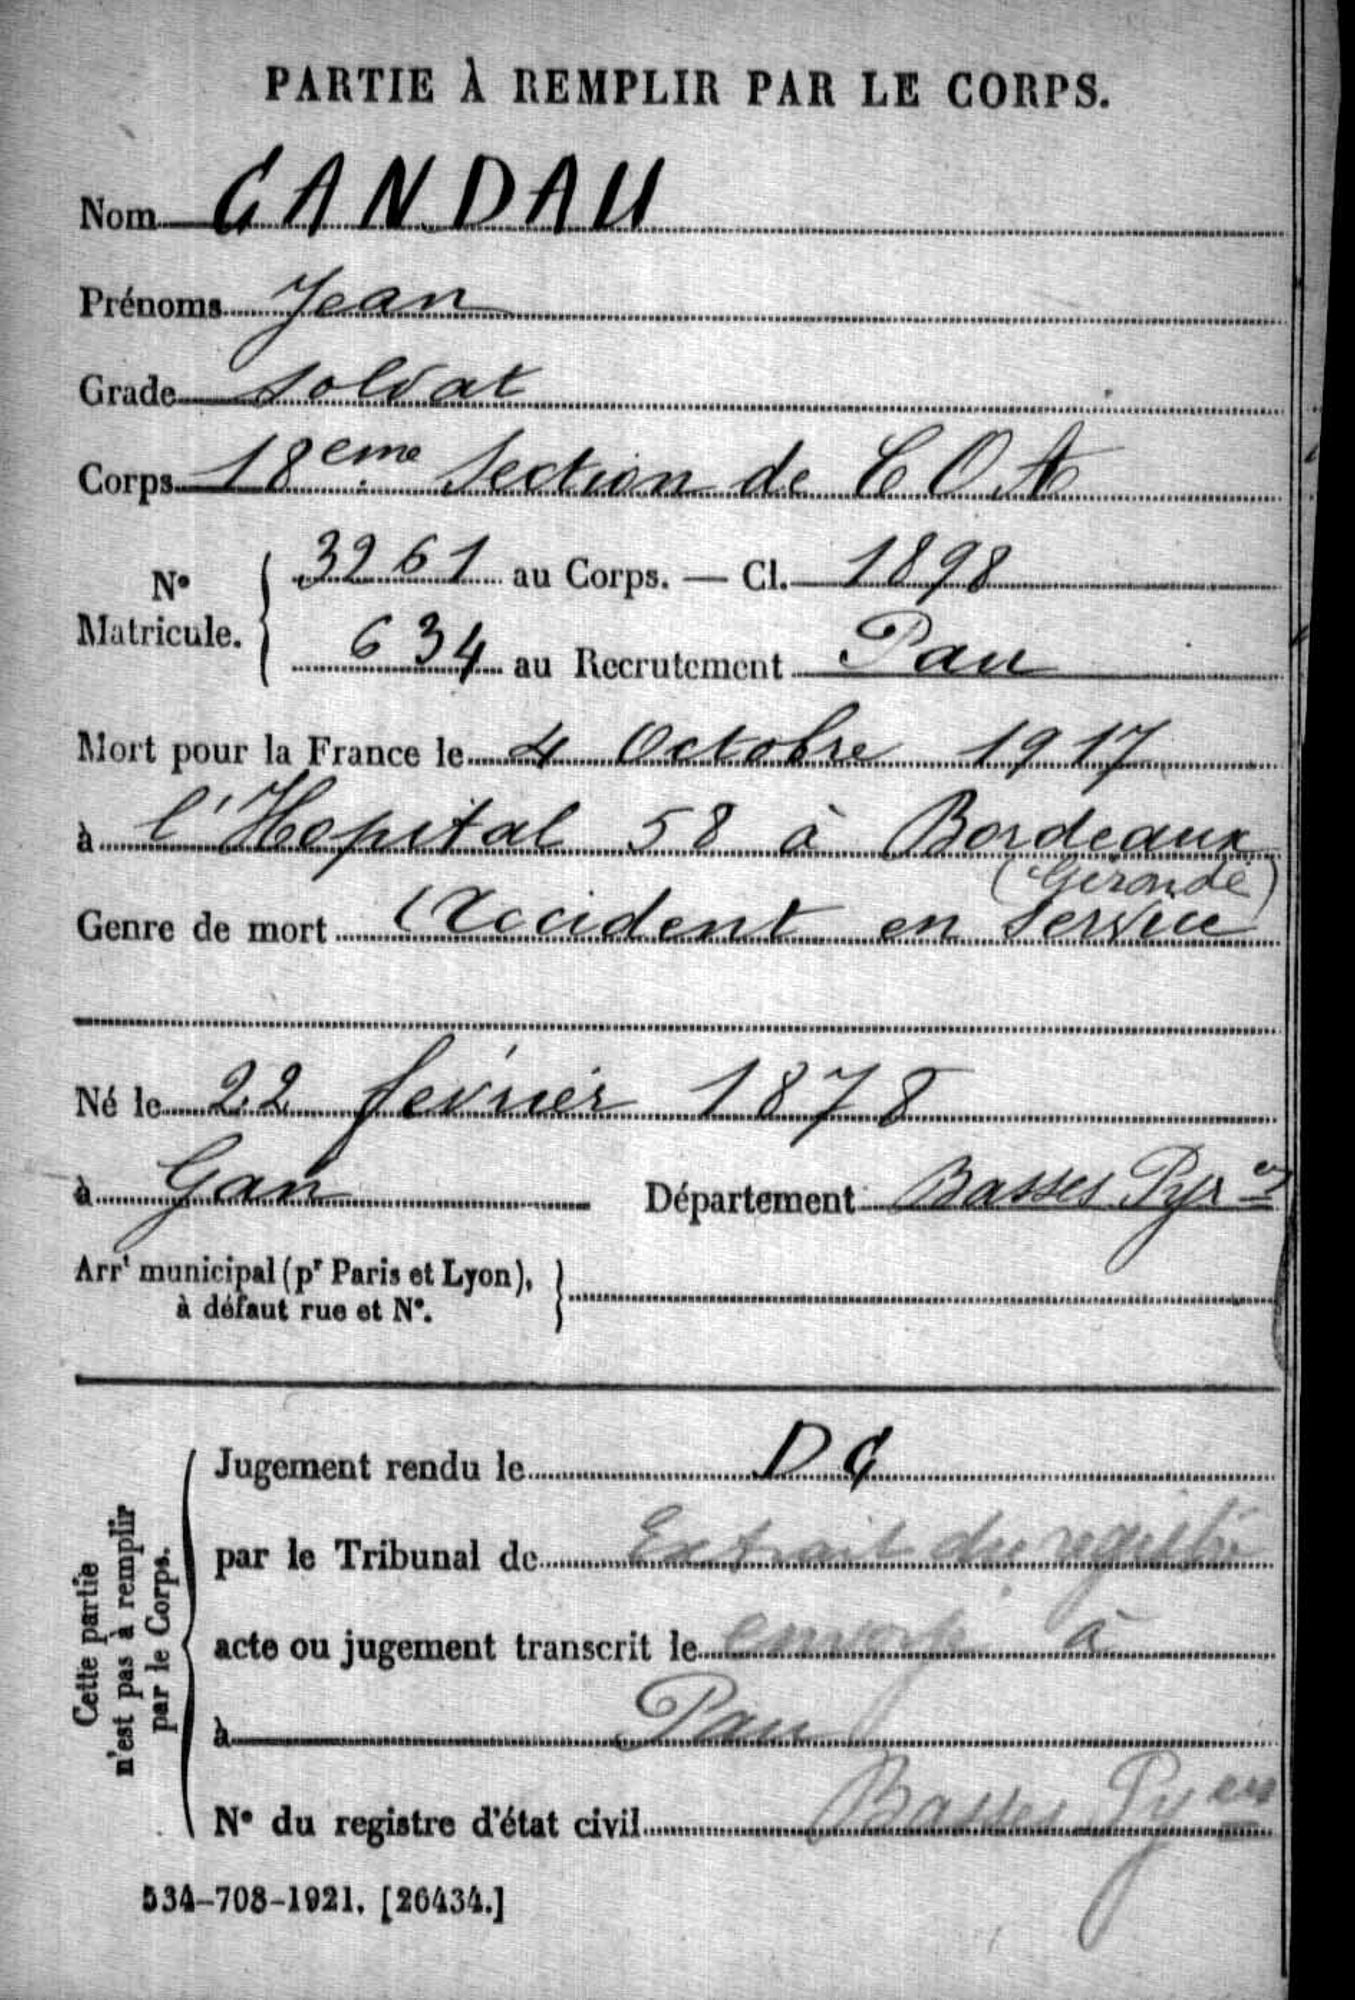 PARTIE À REMPLIR PAR LE CORPS.
Nom CANDAU
Prénoms Jean
Grade Soldat
Corps 18eme Section de C O A
N° Matricule. { 3261 au Corps. — Cl. 1898
634 au Recrutement Pau
Mort pour la France le 4 Octobre 1917
à l'Hopital 58 à Bordeaux
(Gironde)
Genre de mort Accident en Service
Né le 22 février 1878
à Gan Département Basses Pyr es
Arrt municipal (pr Paris et Lyon),
à défaut rue et N°.
Cette partie
n'est pas à remplir
par le Corps.
Jugement rendu le D C
par le Tribunal de Extrait du registre
acte ou jugement transcrit le envoyé à
à Pau
N° du registre d'état civil Basses Pyées
534-708-1921. [26434.]